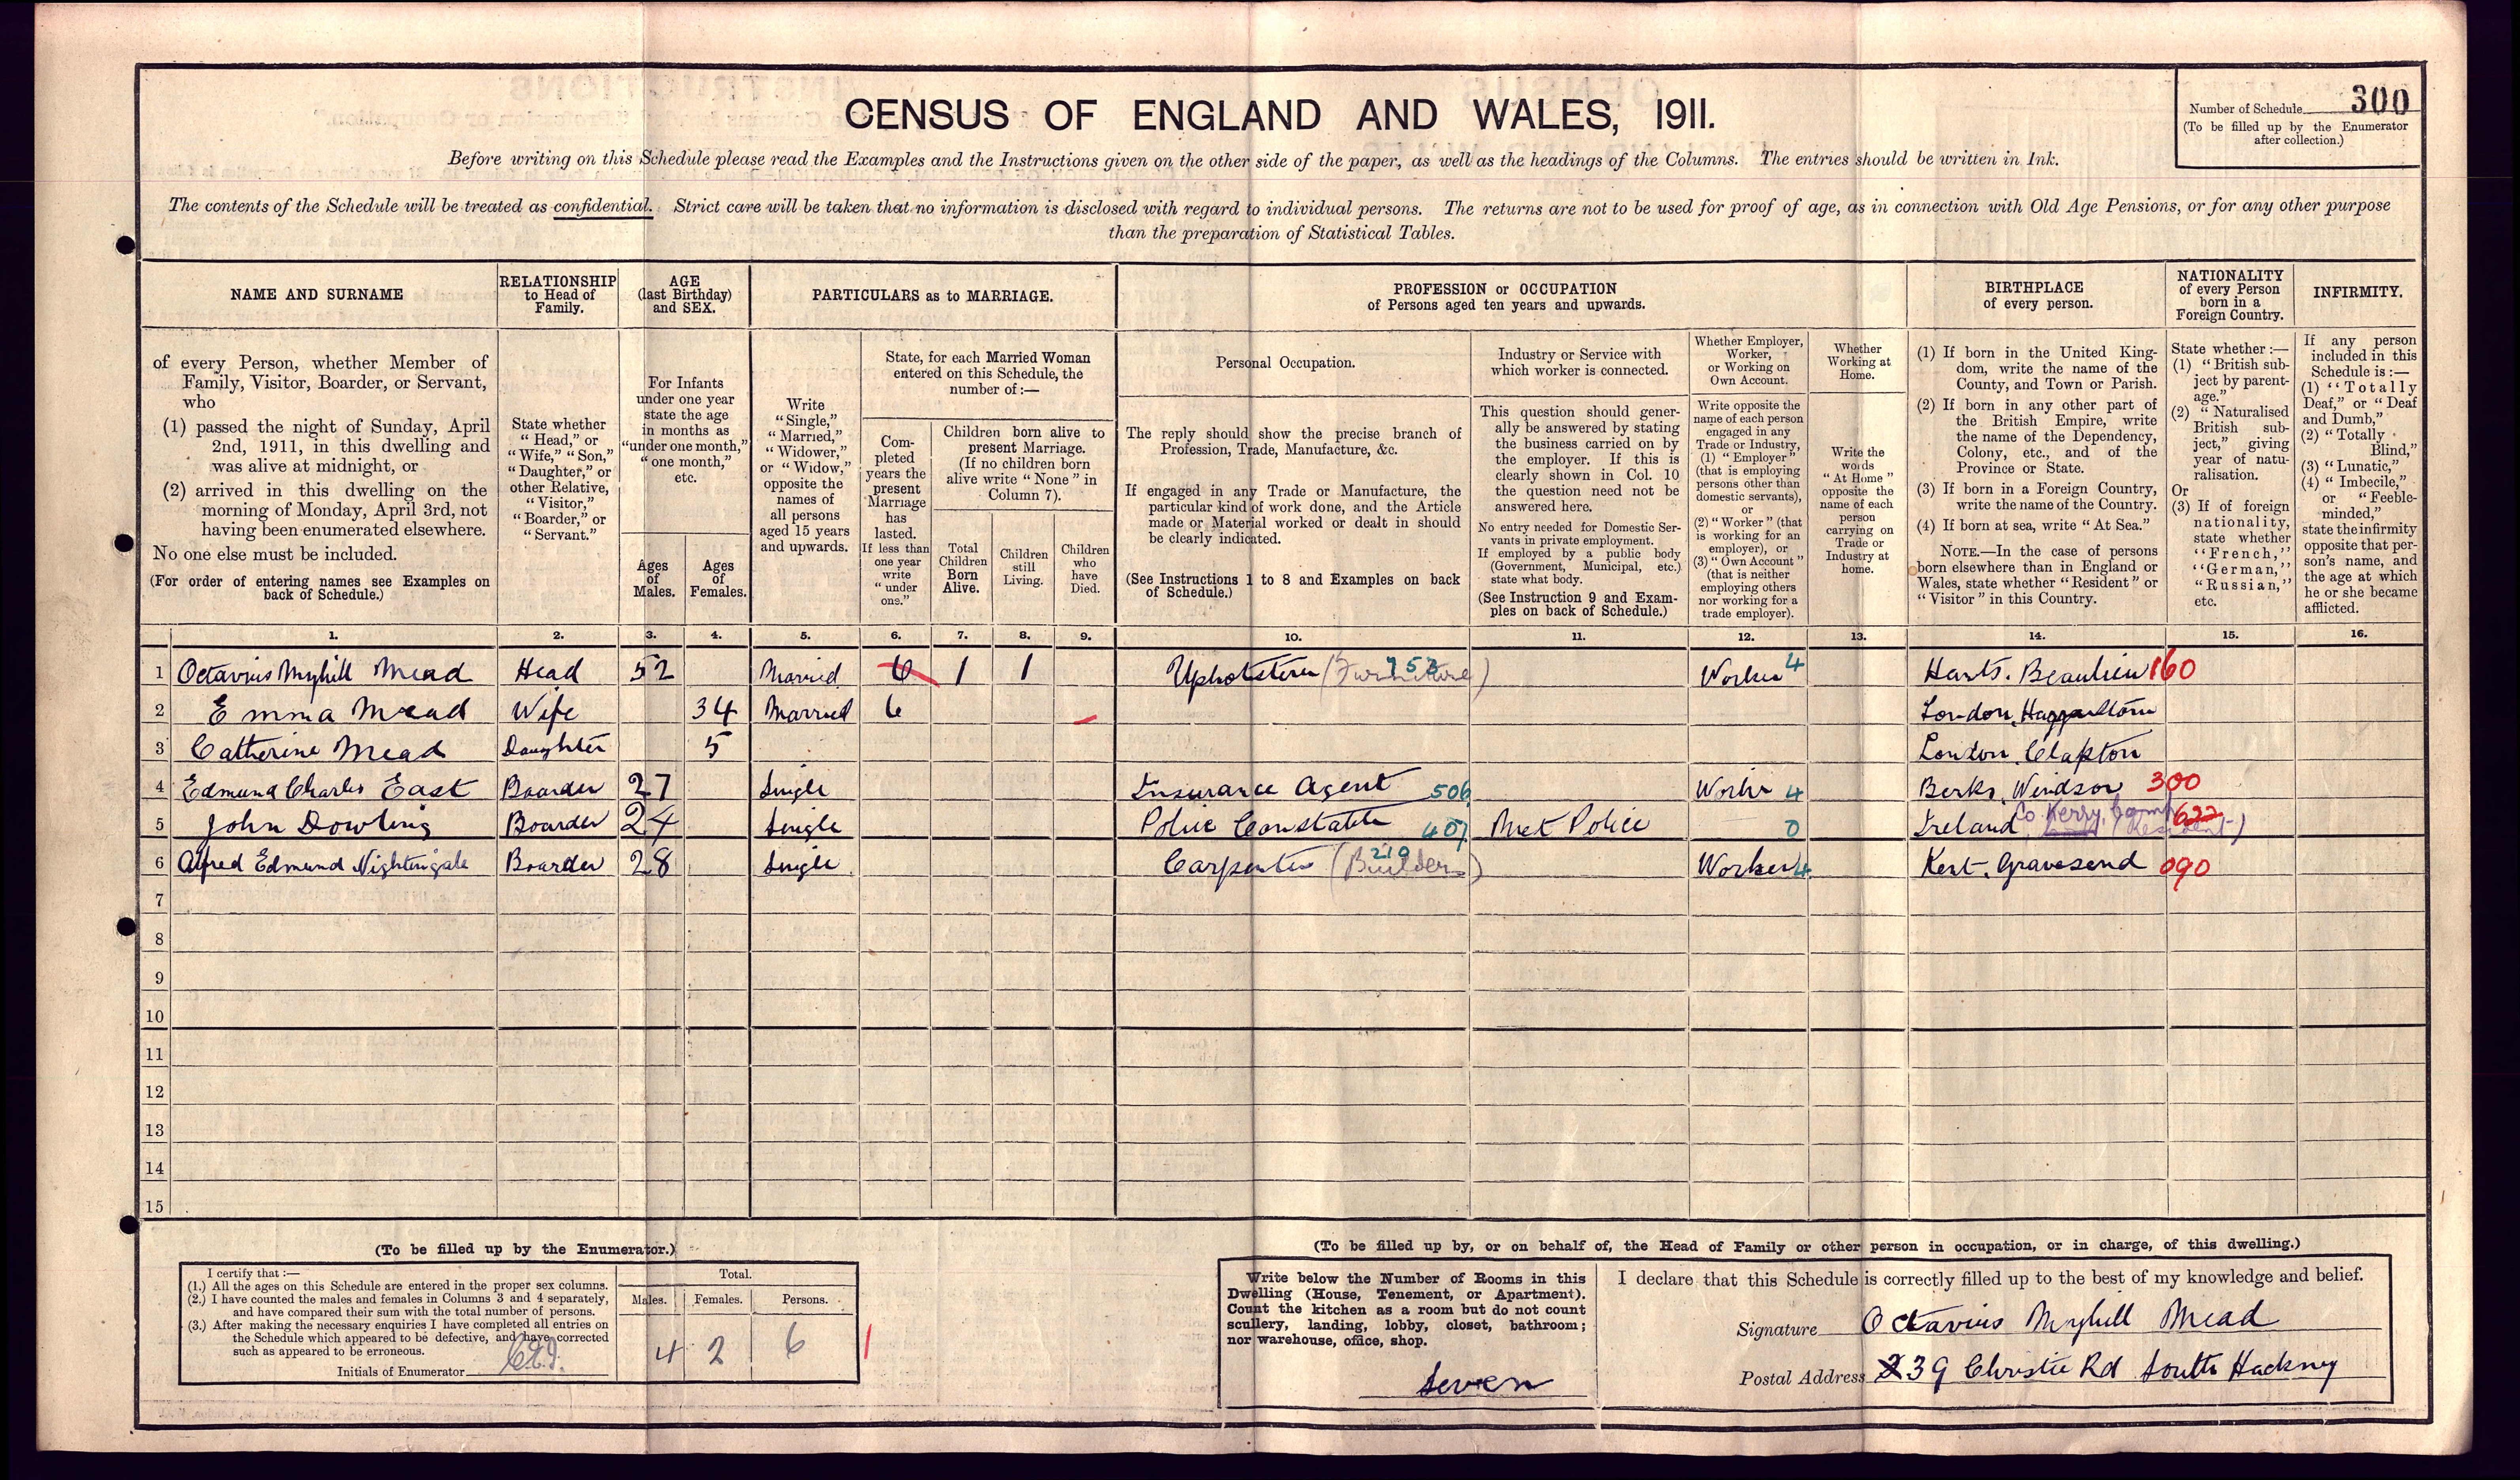 CENSUS OF ENGLAND AND WALES, 1911.
Number of Schedule 300
(To be filled up by the Enumerator
after collection.)
Before writing on this Schedule please read the Examples and the Instructions given on the other side of the paper, as well as the headings of the Columns. The entries should be written in Ink.
The contents of the Schedule will be treated as confidential. Strict care will be taken that no information is disclosed with regard to individual persons. The returns are not to be used for proof of age, as in connection with Old Age Pensions, or for any other purpose
than the preparation of Statistical Tables.
NAME AND SURNAME
of every Person, whether Member of
Family, Visitor, Boarder, or Servant,
who
(1) passed the night of Sunday, April
2nd, 1911, in this dwelling and
was alive at midnight, or
(2) arrived in this dwelling on the
morning of Monday, April 3rd, not
having been enumerated elsewhere.
No one else must be included.
(For order of entering names see Examples on
back of Schedule.)
RELATIONSHIP
to Head of
Family.
State whether
"Head," or
"Wife," "Son,"
"Daughter," or
other Relative,
"Visitor,"
"Boarder," or
"Servant."
AGE
(last Birthday)
and SEX.
For Infants
under one year
state the age
in months as
"under one month,"
"one month,"
etc.
Ages
of
Males.
Ages
of
Females.
PARTICULARS as to MARRIAGE.
Write
"Single,"
"Married,"
"Widower,"
or "Widow,"
opposite the
names of
all persons
aged 15 years
and upwards.
State, for each Married Woman
entered on this Schedule, the
number of:—
Com-
pleted
years the
present
Marriage
has
lasted.
If less than
one year
write
"under
one."
Children born alive to
present Marriage.
(If no children born
alive write "None" in
Column 7).
Total
Children
Born
Alive.
Children
still
Living.
Children
who
have
Died.
PROFESSION or OCCUPATION
of Persons aged ten years and upwards.
Personal Occupation.
The reply should show the precise branch of
Profession, Trade, Manufacture, &c.
If engaged in any Trade or Manufacture, the
particular kind of work done, and the Article
made or Material worked or dealt in should
be clearly indicated.
(See Instructions 1 to 8 and Examples on back
of Schedule.)
Industry or Service with
which worker is connected.
This question should gener-
ally be answered by stating
the business carried on by
the employer. If this is
clearly shown in Col. 10
the question need not be
answered here.
No entry needed for Domestic Ser-
vants in private employment.
If employed by a public body
(Government, Municipal, etc.)
state what body.
(See Instruction 9 and Exam-
ples on back of Schedule.)
Whether Employer,
Worker,
or Working on
Own Account.
Write opposite the
name of each person
engaged in any
Trade or Industry,
(1) "Employer"
(that is employing
persons other than
domestic servants),
or
(2) "Worker" (that
is working for an
employer), or
(3) "Own Account"
(that is neither
employing others
nor working for a
trade employer).
Whether
Working at
Home.
Write the
words
"At Home"
opposite the
name of each
person
carrying on
Trade or
Industry at
home.
BIRTHPLACE
of every person.
(1) If born in the United King-
dom, write the name of the
County, and Town or Parish.
(2) If born in any other part of
the British Empire, write
the name of the Dependency,
Colony, etc., and of the
Province or State.
(3) If born in a Foreign Country,
write the name of the Country.
(4) If born at sea, write "At Sea."
NOTE.—In the case of persons
born elsewhere than in England or
Wales, state whether "Resident" or
"Visitor" in this Country.
NATIONALITY
of every Person
born in a
Foreign Country.
State whether :—
(1) "British sub-
ject by parent-
age."
(2) "Naturalised
British sub-
ject," giving
year of natu-
ralisation.
Or
(3) If of foreign
nationality,
state whether
"French,"
"German,"
"Russian,"
etc.
INFIRMITY.
If any person
included in this
Schedule is :—
(1) "Totally
Deaf," or "Deaf
and Dumb,"
(2) "Totally
Blind,"
(3) "Lunatic,"
(4) "Imbecile,"
or "Feeble-
minded,"
state the infirmity
opposite that per-
son's name, and
the age at which
he or she became
afflicted.
1. 2. 3. 4. 5. 6. 7. 8. 9. 10. 11. 12. 13. 14. 15. 16.
1 Octavius Myhill Mead Head 52 Married 6 1 1 Upholsterer (Furniture) 753 Worker 4 Hants. Beaulieu 160
2 Emma Mead Wife 34 Married 6 London, Haggerstone
3 Catherine Mead Daughter 5 London, Clapton
4 Edmund Charles East Boarder 27 Single Insurance Agent 506 Worker 4 Berks, Windsor 300
5 John Dowling Boarder 24 Single Police Constable 407 Met Police 0 Ireland Co. Kerry, Camp (Resident) 622
6 Alfred Edmund Nightingale Boarder 28 Single Carpenter (Builders) 210 Worker 4 Kent, Gravesend 090
7
8
9
10
11
12
13
14
15
(To be filled up by the Enumerator.)
I certify that :—
(1.) All the ages on this Schedule are entered in the proper sex columns.
(2.) I have counted the males and females in Columns 3 and 4 separately,
and have compared their sum with the total number of persons.
(3.) After making the necessary enquiries I have completed all entries on
the Schedule which appeared to be defective, and have corrected
such as appeared to be erroneous.
Initials of Enumerator
Total.
Males. Females. Persons.
4 2 6
(To be filled up by, or on behalf of, the Head of Family or other person in occupation, or in charge, of this dwelling.)
Write below the Number of Rooms in this
Dwelling (House, Tenement, or Apartment).
Count the kitchen as a room but do not count
scullery, landing, lobby, closet, bathroom;
nor warehouse, office, shop.
Seven
I declare that this Schedule is correctly filled up to the best of my knowledge and belief.
Signature Octavius Myhill Mead
Postal Address 39 Christie Rd South Hackney